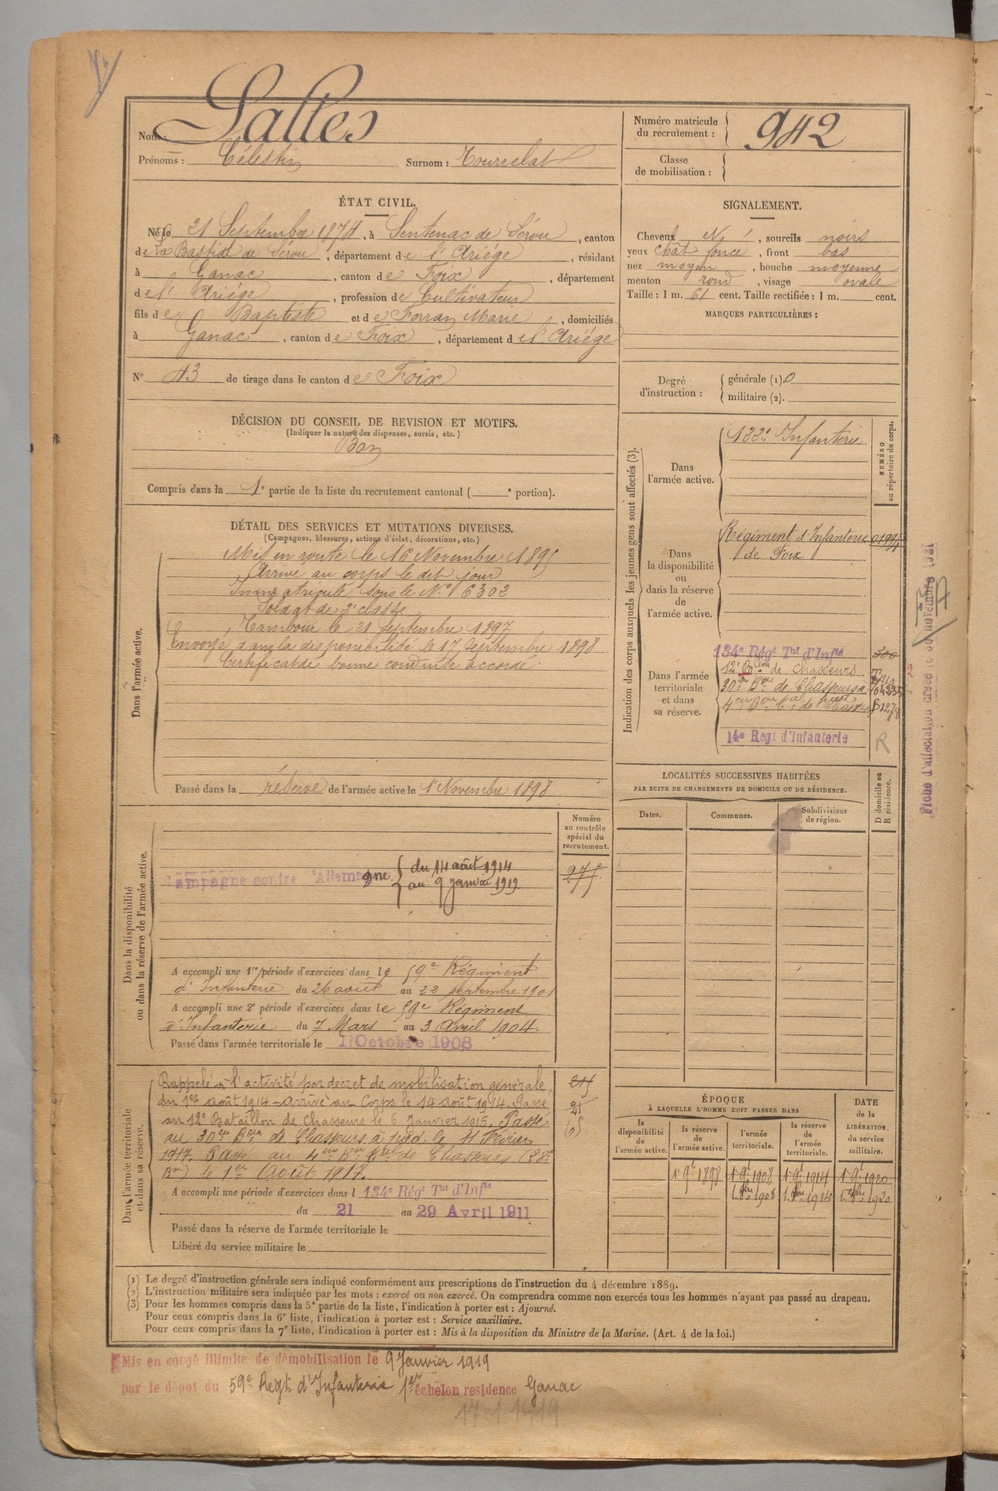 Nom : Salles
Prénoms : Célestin Surnom : Tourrelat
Numéro matricule
du recrutement : 942
Classe
de mobilisation :
ÉTAT CIVIL.
Né le 21 Septembre 1874, à Sentenac de Sérou, canton
de La Bastide de Sérou, département de l'Ariége, résidant
à Ganac, canton de Foix, département
de l'Ariége, profession de Cultivateur
fils de Baptiste et de Forran Marie, domiciliés
à Ganac, canton de Foix, département de l'Ariége
N° 43 de tirage dans le canton de Foix
SIGNALEMENT.
Cheveux N, sourcils noirs
yeux chât foncé, front bas
nez moyen, bouche moyenne
menton rond, visage ovale
Taille : 1 m. 61 cent. Taille rectifiée : 1 m. cent.
MARQUES PARTICULIÈRES :
Degré
d'instruction :
générale (1) 0
militaire (2).
DÉCISION DU CONSEIL DE REVISION ET MOTIFS.
(Indiquer la nature des dispenses, sursis, etc.)
Bon
Compris dans la 1e partie de la liste du recrutement cantonal ( e portion).
DÉTAIL DES SERVICES ET MUTATIONS DIVERSES.
(Campagnes, blessures, actions d'éclat, décorations, etc.)
Dans l'armée active.
Mis en route le 16 Novembre 1895
Arrivé au corps le dit jour
Immatriculé sous le N° 6302
Soldat de 2e classe
Tambour le 21 Septembre 1897
Envoyé dans la disponibilité le 17 Septembre 1898
Certificat de bonne conduite accordé.
Passé dans la réserve de l'armée active le 1er Novembre 1898
Indication des corps auxquels les jeunes gens sont affectés (3).
NUMÉRO
au répertoire du corps.
Dans
l'armée active.
122e Infanterie
Dans
la disponibilité
ou
dans la réserve
de
l'armée active.
Régiment d'Infanterie
de Foix
Dans l'armée
territoriale
et dans
sa réserve.
134e Régt Tal d'Infie
12e Bton de Chasseurs
30e Bon de Chasseurs
14e Régt d'Infanterie
R
LOCALITÉS SUCCESSIVES HABITÉES
PAR SUITE DE CHANGEMENTS DE DOMICILE OU DE RÉSIDENCE.
Dates.
Communes.
Subdivisions
de région.
D domicile ou
R résidence.
Dans la disponibilité
ou dans la réserve de l'armée active.
Numéro
au contrôle
spécial du
recrutement.
Campagne contre l'Allemagne du 14 août 1914
au 9 janvier 1919.
A accompli une 1re période d'exercices dans le 59e Régiment
d'Infanterie du 26 août au 22 septembre 1901
A accompli une 2e période d'exercices dans le 59e Régiment
d'Infanterie du 7 Mars au 3 Avril 1904.
Passé dans l'armée territoriale le 1er Octobre 1908
Dans l'armée territoriale
et dans sa réserve.
Rappelé à l'activité par décret de mobilisation générale
du 1er août 1914 – arrivé au Corps le 14 août 1914. Passé
au 12e Bataillon de Chasseurs le 6 Janvier 1915. Passé
au 30e Bon de Chasseurs à pied le 11 Février
1917. Passé au 4e Bon de Chasseurs
le 1er Août 1917.
A accompli une période d'exercices dans l 134e Régt Tal d'Infie
du 21 au 29 Avril 1911
Passé dans la réserve de l'armée territoriale le
Libéré du service militaire le
ÉPOQUE
À LAQUELLE L'HOMME DOIT PASSER DANS
la
disponibilité
de
l'armée active.
la réserve
de
l'armée active.
l'armée
territoriale.
la réserve
de l'armée
territoriale.
DATE
de la
LIBÉRATION.
du service
militaire.
1 9bre 1898 1 9bre 1908 1 9bre 1914 1 9bre 1920
1 8bre 1908 1 8bre 1914 1 8bre 1920
(1) Le degré d'instruction générale sera indiqué conformément aux prescriptions de l'instruction du 4 décembre 1889.
(2) L'instruction militaire sera indiquée par les mots : exercé ou non exercé. On comprendra comme non exercés tous les hommes n'ayant pas passé au drapeau.
(3) Pour les hommes compris dans la 5e partie de la liste, l'indication à porter est : Ajourné.
Pour ceux compris dans la 6e liste, l'indication à porter est : Service auxiliaire.
Pour ceux compris dans la 7e liste, l'indication à porter est : Mis à la disposition du Ministre de la Marine. (Art. 4 de la loi.)
Mis en congé illimité de démobilisation le 9 Janvier 1919
par le dépôt du 59e Régt d'Infanterie 1er échelon résidence Ganac
17.1.1919